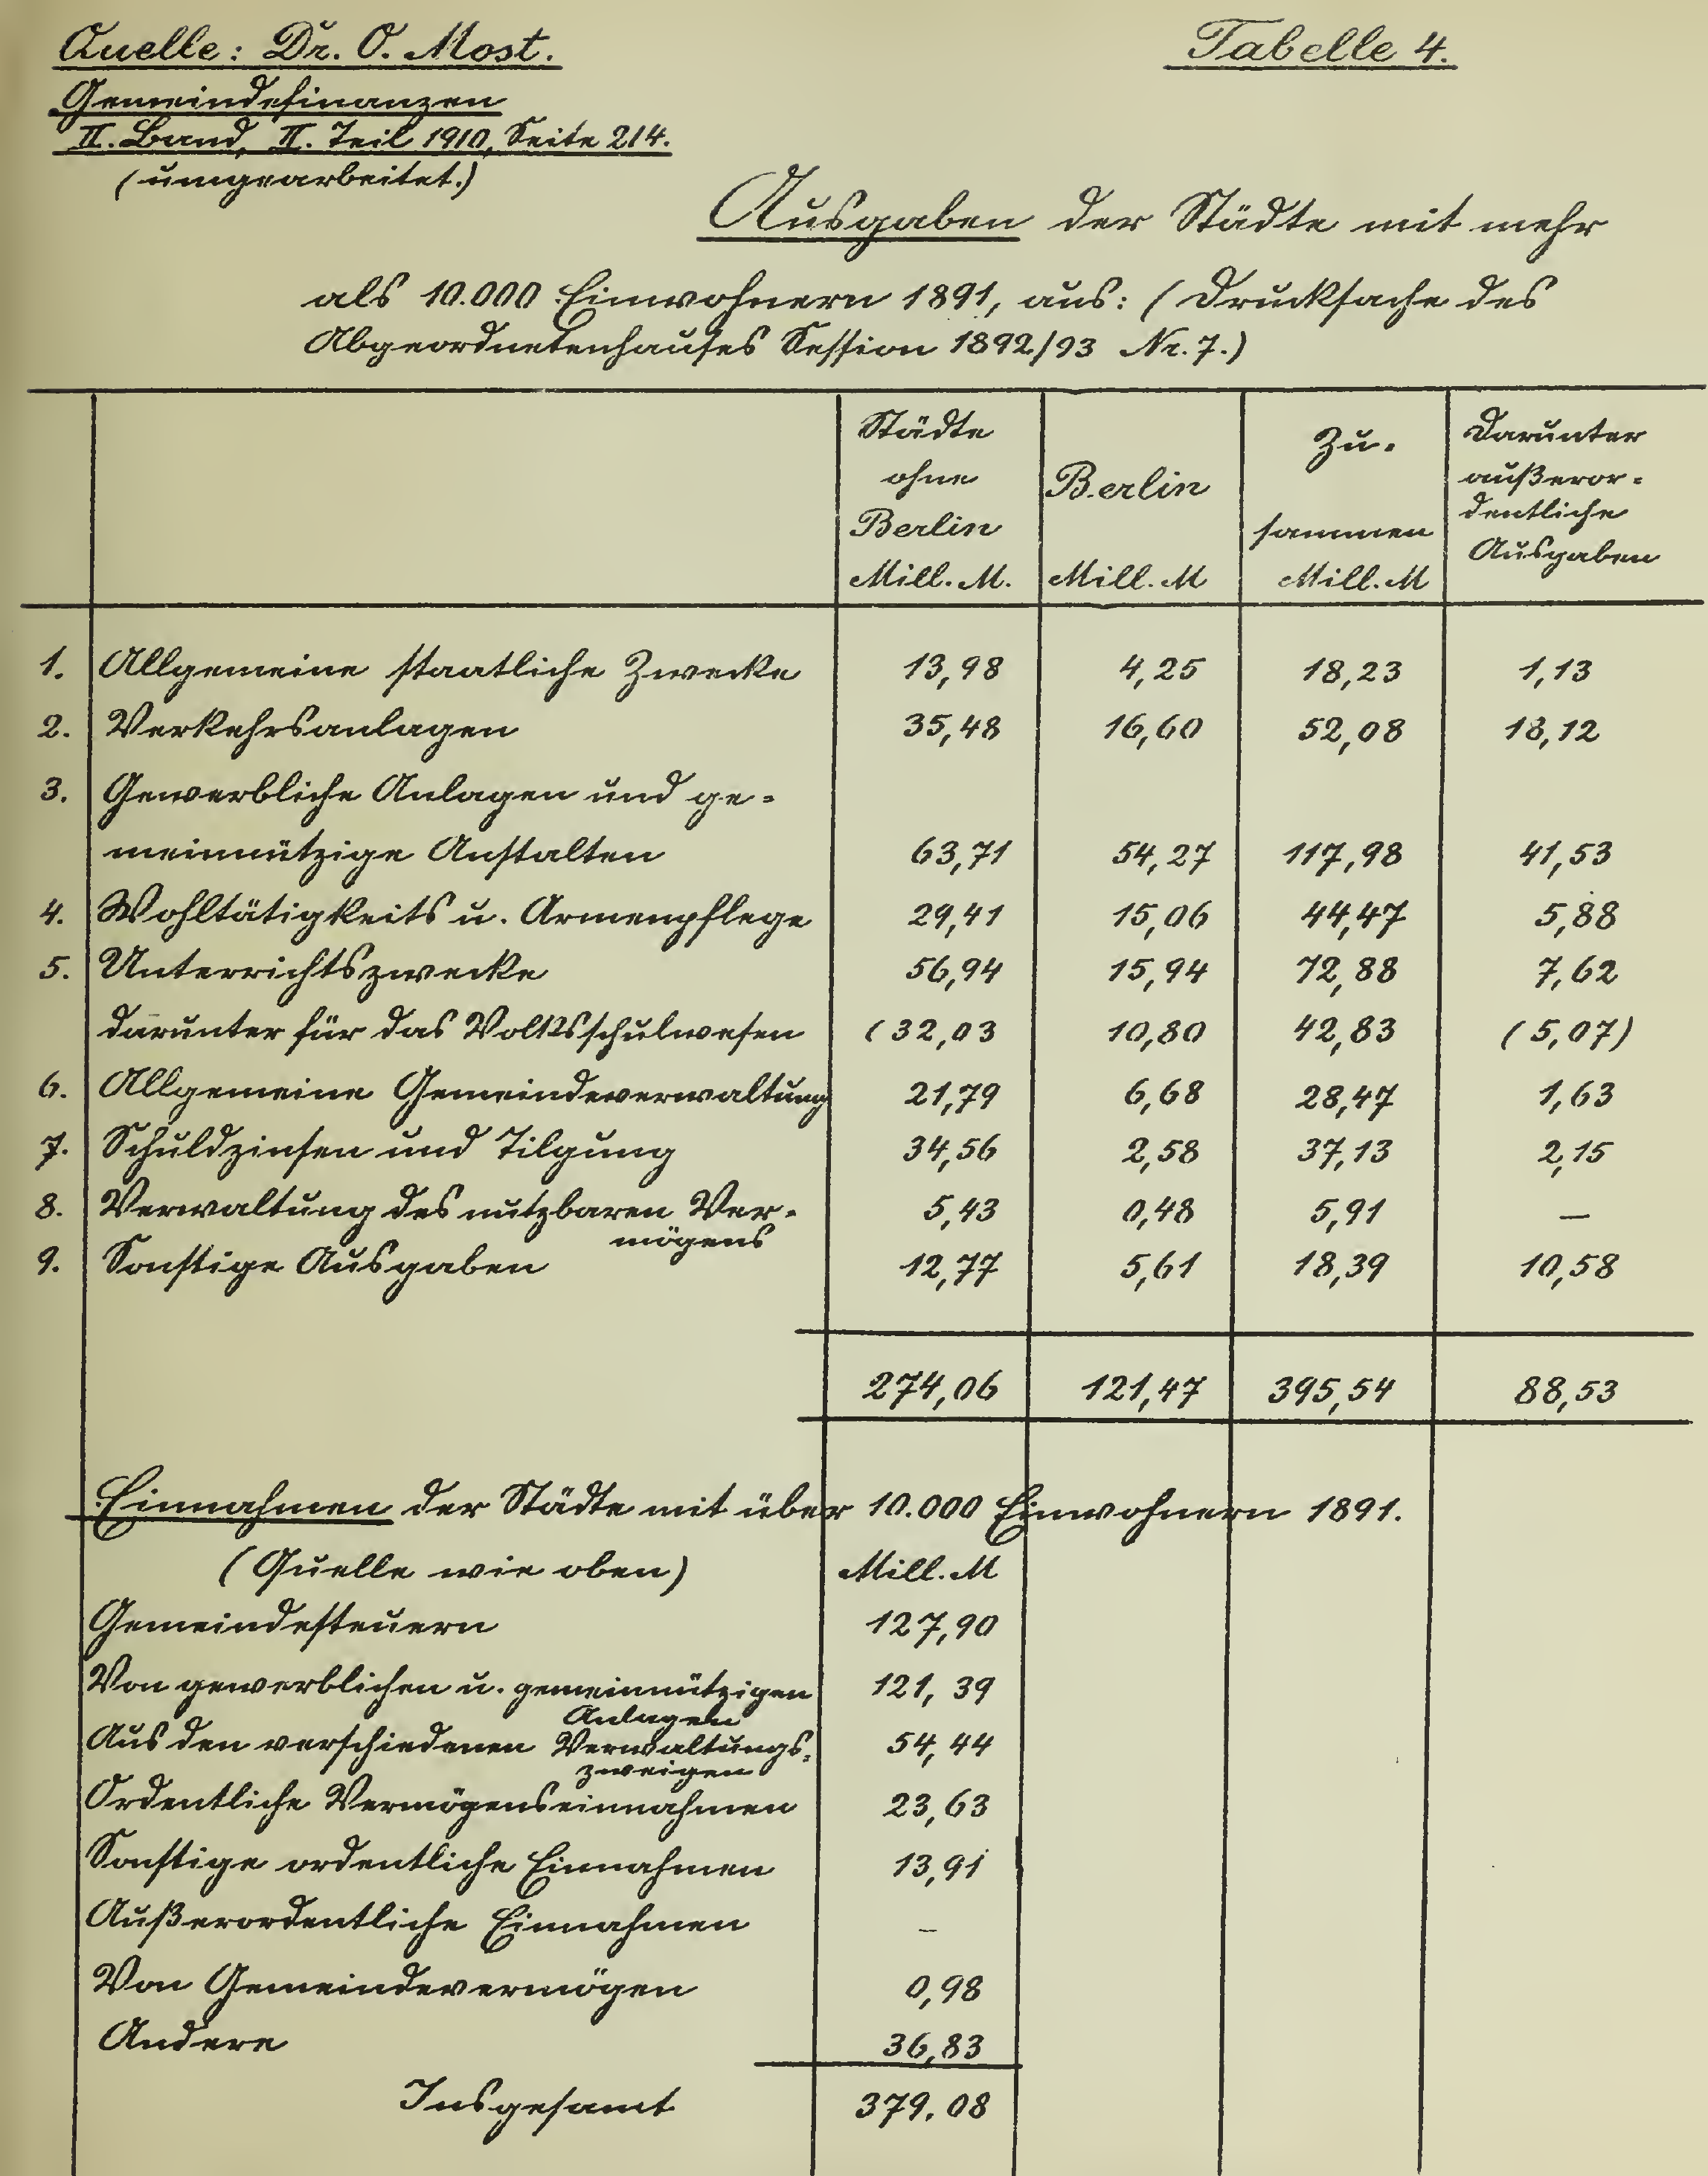 Quelle: Dr. O. Most.
Tabelle 4.
Gemeindefinanzen
II. Band, II. Teil 1910, Seite 214.
(umgearbeitet.)
Ausgaben der Städte mit mehr
als 10.000 Einwohnern 1891, aus: (Drucksache des
Abgeordnetenhauses Session 1892/93 Nr. 7.)
Städte ohne Berlin Mill. M. | Berlin Mill. M | Zu-sammen Mill. M | Darunter außeror-dentliche Ausgaben
1. Allgemeine staatliche Zwecke 13,98 4,25 18,23 1,13
2. Verkehrsanlagen 35,48 16,60 52,08 18,12
3. Gewerbliche Anlagen und ge-
meinnützige Anstalten 63,71 54,27 117,98 41,53
4. Wohltätigkeits u. Armenpflege 29,41 15,06 44,47 5,88
5. Unterrichtszwecke 56,94 15,94 72,88 7,62
darunter für das Volksschulwesen (32,03 10,80 42,83 (5,07)
6. Allgemeine Gemeindeverwaltung 21,79 6,68 28,47 1,63
7. Schuldzinsen und Tilgung 34,56 2,58 37,13 2,15
8. Verwaltung des nutzbaren Ver- 5,43 0,48 5,91 —
mögens
9. Sonstige Ausgaben 12,77 5,61 18,39 10,58
274,06 121,47 395,54 88,53
Einnahmen der Städte mit über 10.000 Einwohnern 1891.
(Quelle wie oben) Mill. M
Gemeindesteuern 127,90
Von gewerblichen u. gemeinnützigen 121,39
Anlagen
Aus den verschiedenen Verwaltungs- 54,44
zweigen
Ordentliche Vermögenseinnahmen 23,63
Sonstige ordentliche Einnahmen 13,91
Außerordentliche Einnahmen –
Von Gemeindevermögen 0,98
Andere 36,83
Insgesamt 379.08